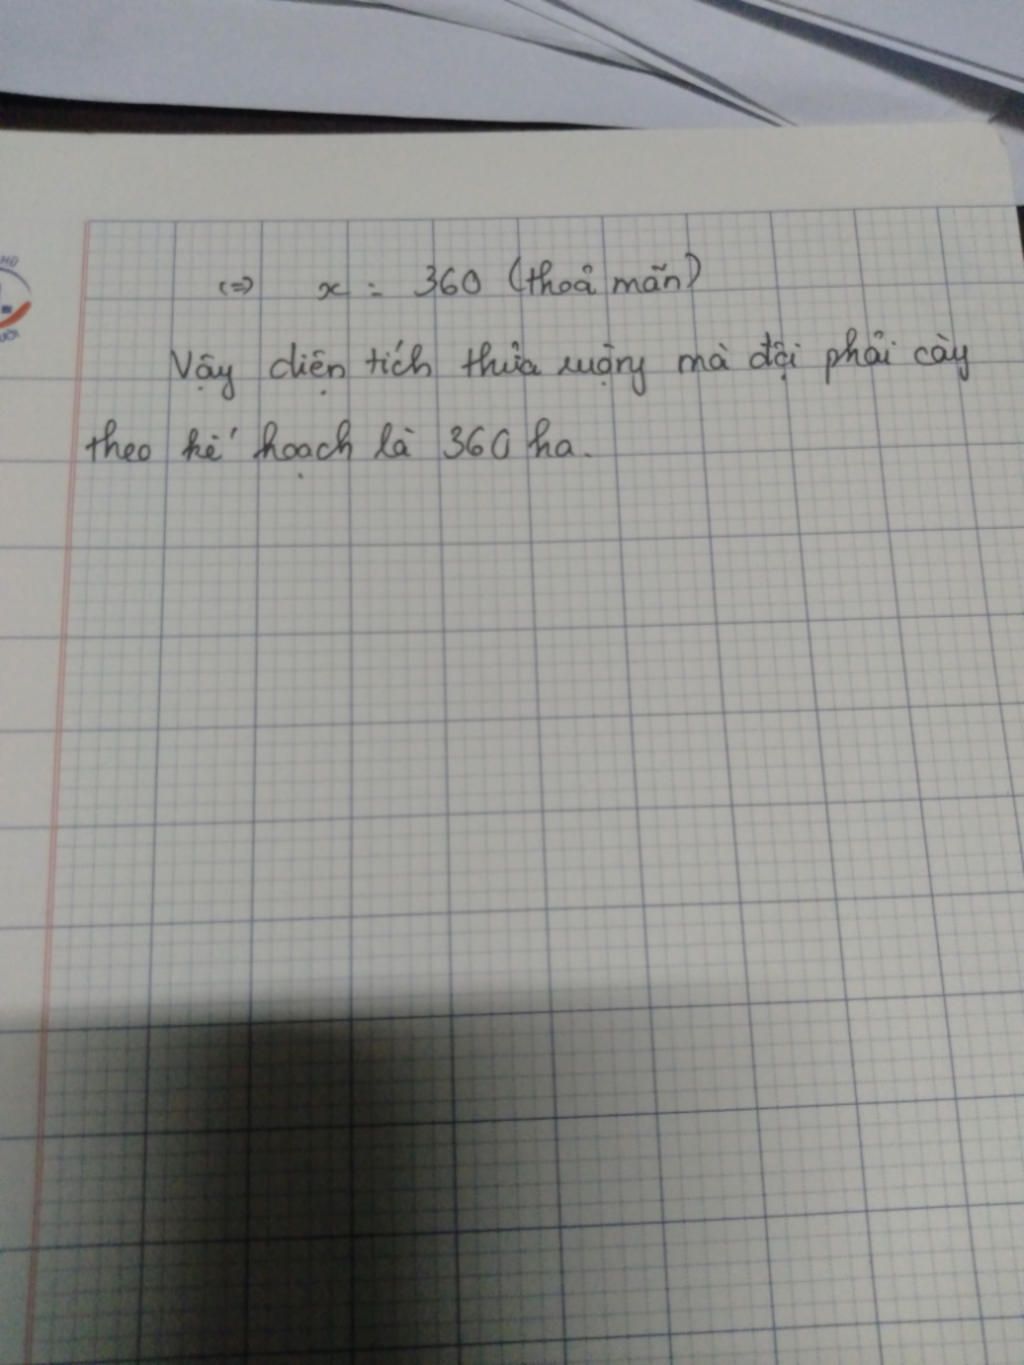 <=> x = 360 (thoả mãn)
Vậy diện tích thửa ruộng mà đội phải cày
theo kế hoạch là 360 ha.